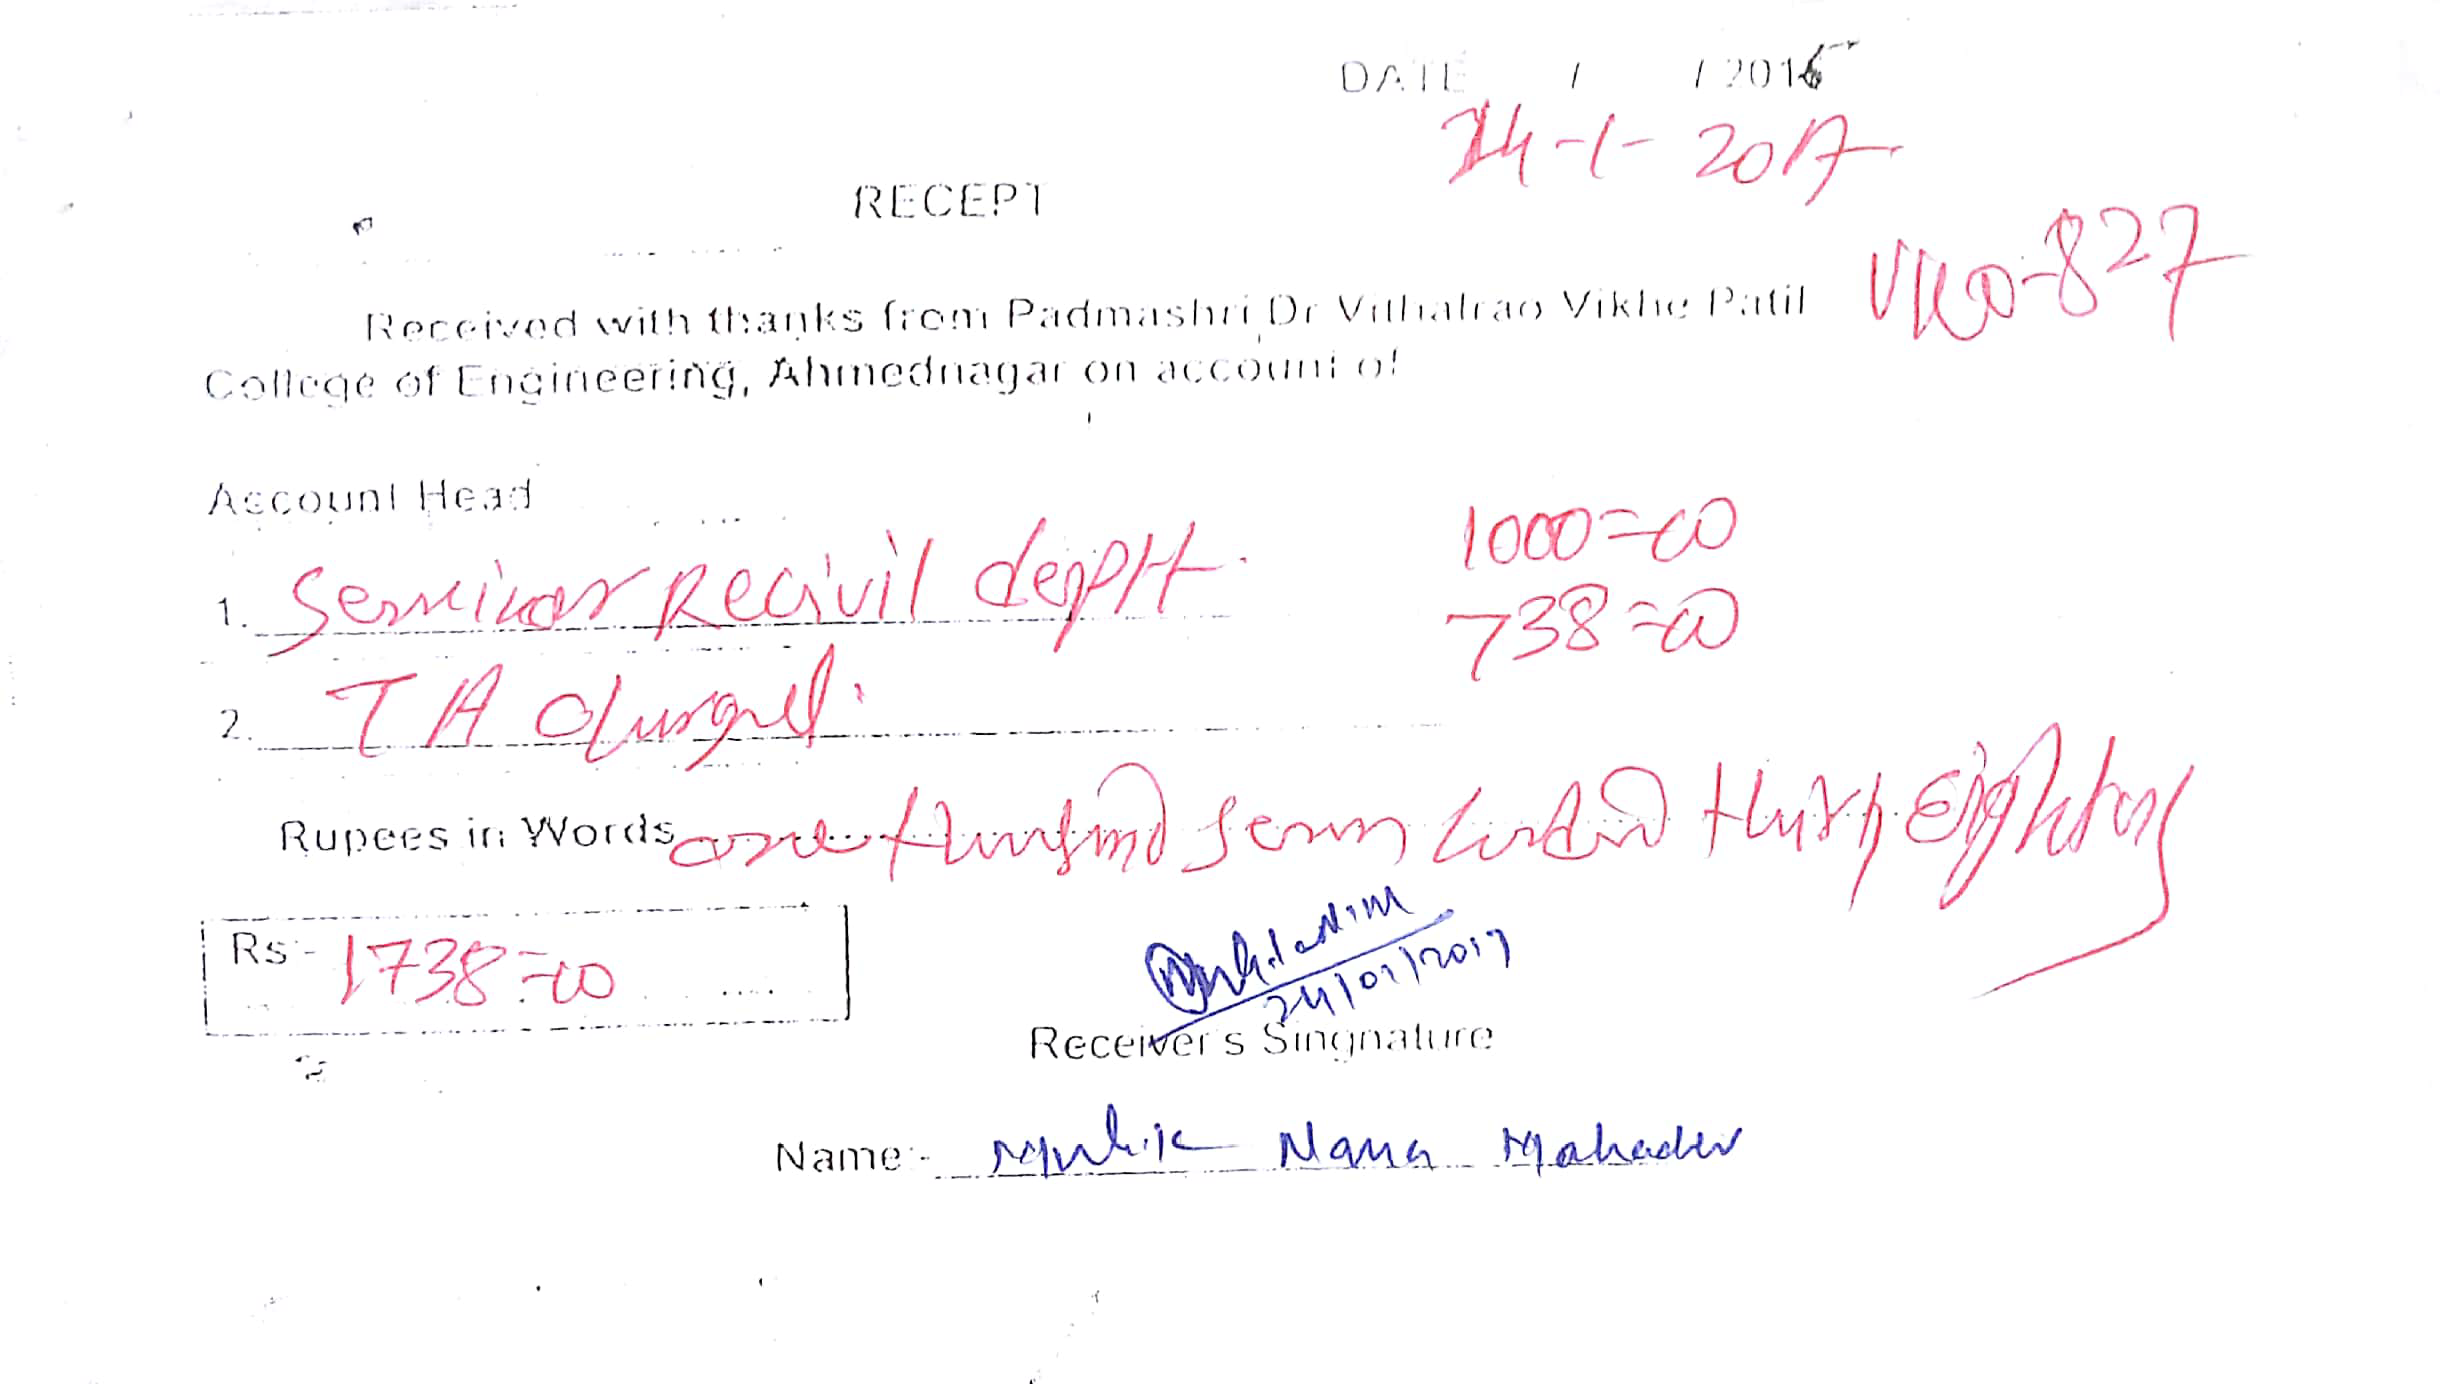 DATE / / 2016
24-1-2017
RECEPT
VNO-827
Received with thanks from Padmashri Dr Vithalrao Vikhe Patil
College of Engineering, Ahmednagar on account of
Account Head
1. Seminar Re Civil deptt. 1000=00
738=00
2. TA
Rupees in Words one thousand seven hundred thirty Eight only
Rs:- 1738=00
24/01/2017
Receiver's Singnature
Name:- Mulik Nana Mahadev